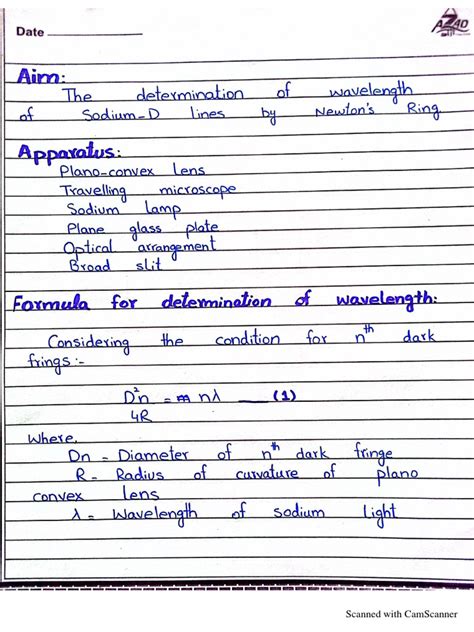 Date
AZAD
Aim:
The determination of wavelength
of Sodium-D lines by Newton's Ring
Apparatus:
Plano-convex Lens
Travelling microscope
Sodium Lamp
Plane glass plate
Optical arrangement
Broad slit
Formula for determination of wavelength:
Considering the condition for nth dark
frings:-
D²n = nλ (1)
4R
Where,
Dn - Diameter of nth dark fringe
R - Radius of curvature of plano
convex lens
λ = Wavelength of sodium Light
Scanned with CamScanner